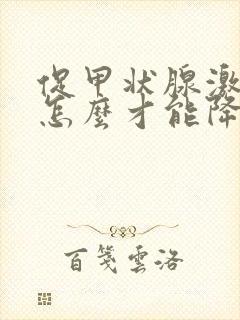 促甲状腺激
怎麼才能降
百箋雲洛